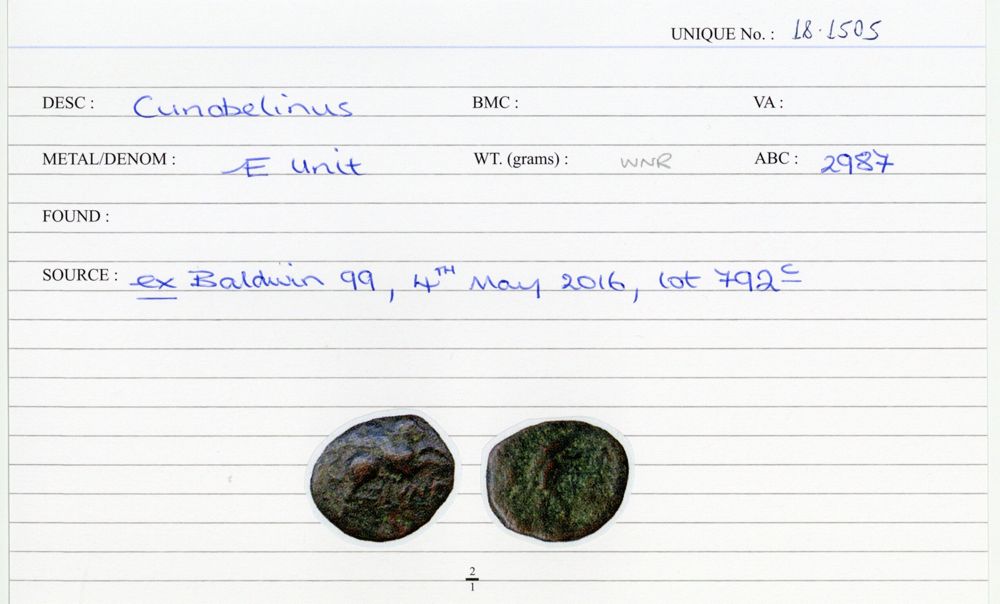 UNIQUE No. : 18.1505
DESC : Cunobelinus BMC : VA :
METAL/DENOM : Æ Unit WT. (grams) : WNR ABC : 2987
FOUND :
SOURCE : ex Baldwin 99, 4TH May 2016, lot 792c
2
1